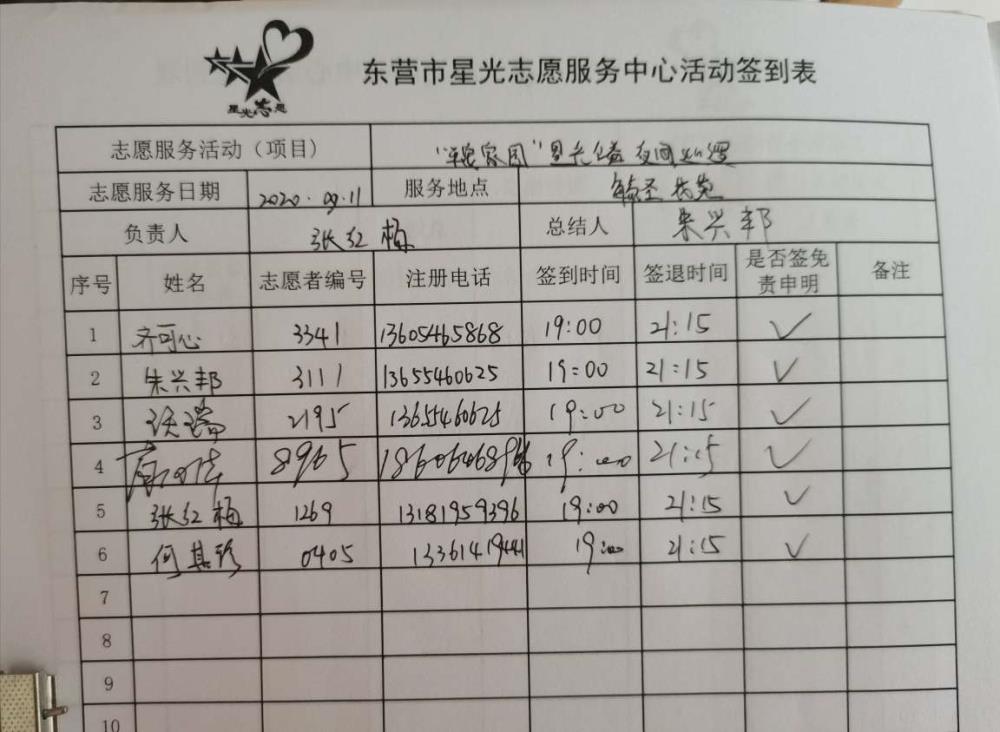 星光志愿
东营市星光志愿服务中心活动签到表
志愿服务活动（项目） "平安家园"星光公益夜间巡逻
志愿服务日期 2020.09.11 服务地点
负责人 张红梅 总结人 朱兴邦
序号 姓名 志愿者编号 注册电话 签到时间 签退时间 是否签免责申明 备注
1 齐可心 3341 13605465868 19:00 21:15 ✓
2 朱兴邦 3111 13655460625 19:00 21:15 ✓
3 2195 13655460625 19:00 21:15 ✓
4 8965 19:00 21:15 ✓
5 张红梅 1269 13181959396 19:00 21:15 ✓
6 何其珍 0405 13361419441 19:00 21:15 ✓
7
8
9
10